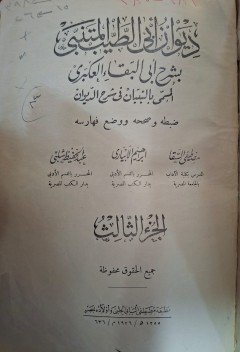 ديوان أبي الطيب المتنبي
بشرح أبي البقاء العكبري
المسمى بالتبيان في شرح الديوان
ضبطه وصححه ووضع فهارسه
مصطفى السقا
إبراهيم الأبياري
عبد الحفيظ شلبي
المدرس بكلية الآداب
بالجامعة المصرية
المحرر بالقسم الأدبي
بدار الكتب المصرية
المحرر بالقسم الأدبي
بدار الكتب المصرية
الجزء الثالث
جميع الحقوق محفوظة
مطبعة مصطفى البابي الحلبي وأولاده بمصر